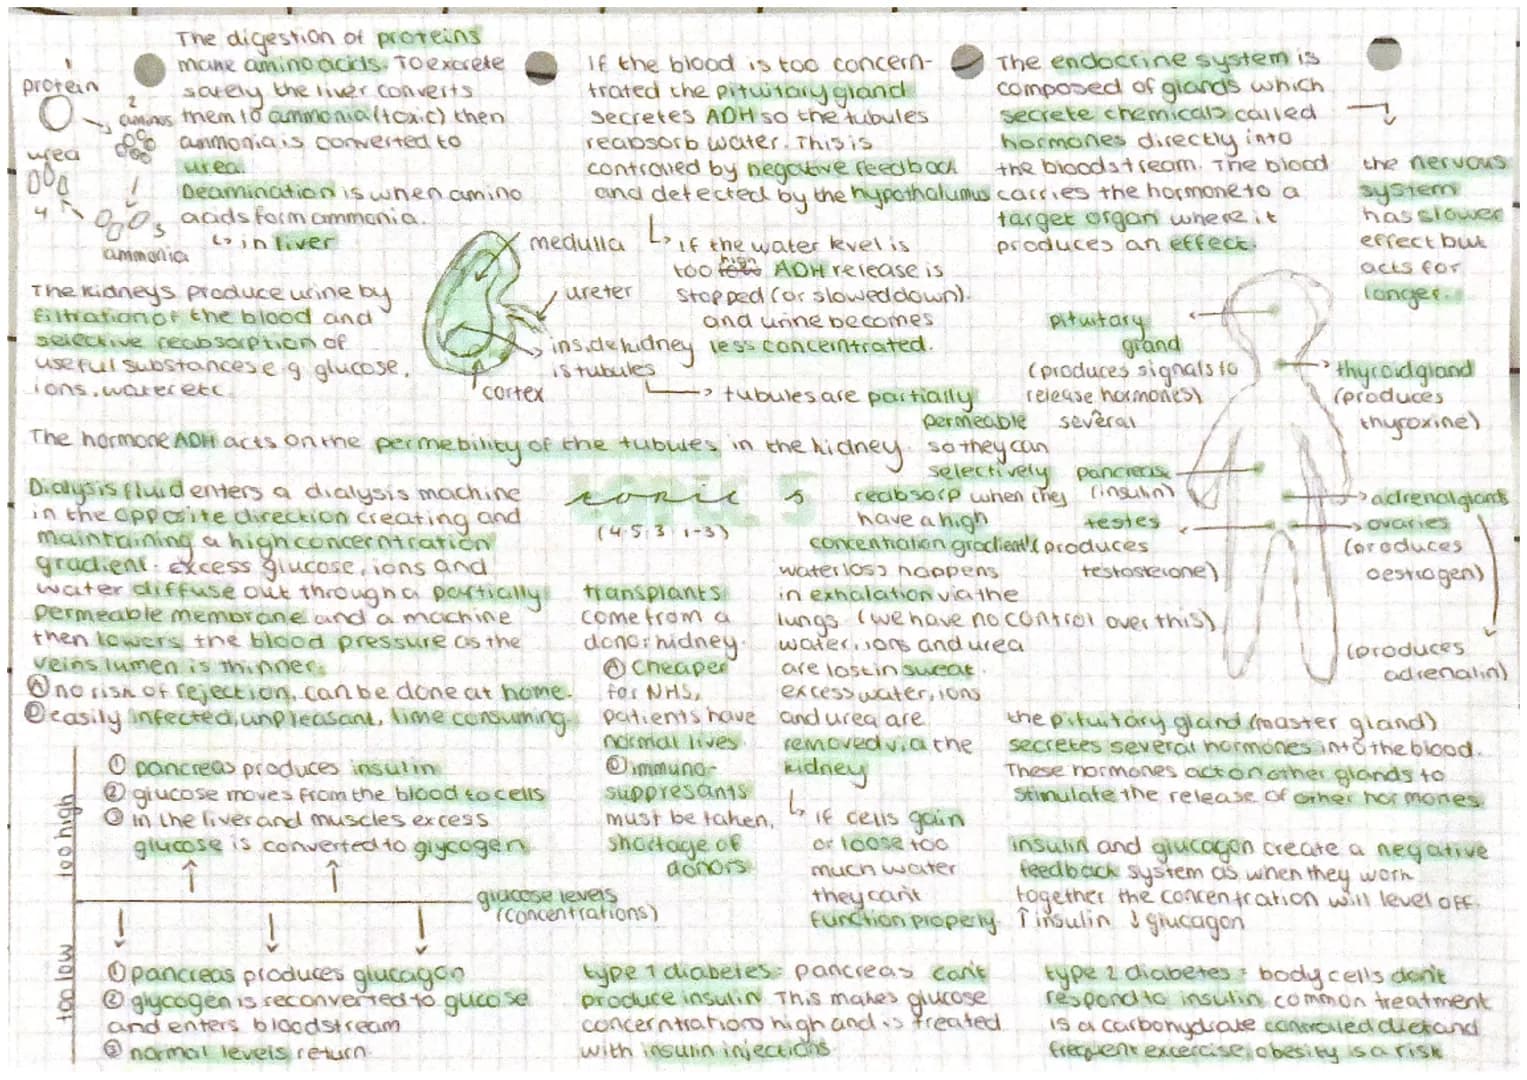 The digestion of proteins
make amino acids. To excrete
safely the liver converts
them to ammonia (toxic) then
ammonia is converted to
urea.
Deamination is when amino
acids form ammonia.
↳ in liver
1
protein
2
aminos
urea
4
3
ammonia
If the blood is too concern-
trated the pituitary gland
secretes ADH so the tubules
reabsorb water. This is
controlled by negative feedback
and detected by the hypothalumus
↳ if the water level is
too high ADH release is
stopped (or slowed down).
and urine becomes
less concerntrated.
The endocrine system is
composed of glands which
secrete chemicals called
hormones directly into
the bloodstream. The blood
carries the hormone to a
target organ where it
produces an effect.
the nervous
system
has slower
effect but
acts for
longer.
The kidneys produce urine by
filtration of the blood and
selective reabsorption of
useful substances e.g glucose,
ions, water etc.
medulla
ureter
inside kidney
is tubules
cortex
→ tubules are partially
permeable
so they can
selectively
reabsorp when they
have a high
concentration gradient
The hormone ADH acts on the permebility of the tubules in the kidney.
pituitary
gland
(produces signals to
release hormones)
several
thyroid gland
(produces
thyroxine)
pancreas
(insulin)
adrenal glands
testes
(produces
testosterone)
ovaries
(produces
oestrogen)
(produces
adrenalin)
Dialysis fluid enters a dialysis machine
in the opposite direction creating and
maintaining a high concerntration
gradient. excess glucose, ions and
water diffuse out through a partially
permeable membrane and a machine
then lowers the blood pressure as the
veins lumen is thinner.
Ⓐ no risk of rejection, can be done at home.
Ⓓ easily infected, unpleasant, time consuming.
TOPIC 5
topic 5
(4.5.3.1-3)
transplants
come from a
donor kidney.
Ⓐ Cheaper
for NHS,
patients have
normal lives.
Ⓓ immuno-
suppresants
must be taken,
shortage of
donors
water loss happens
in exhalation via the
lungs (we have no control over this)
water, ions and urea
are lost in sweat.
excess water, ions
and urea are
removed via the
kidney
↳ if cells gain
or loose too
much water
they can't
function properly.
the pituitary gland (master gland)
secretes several hormones into the blood.
These hormones act on other glands to
stimulate the release of other hormones.
insulin and glucagon create a negative
feedback system as when they work
together the concentration will level off.
↑ insulin ↓ glucagon
too high
① pancreas produces insulin
② glucose moves from the blood to cells
③ in the liver and muscles excess
glucose is converted to glycogen
glucose levels
(concentrations)
too low
① pancreas produces glucagon
② glycogen is reconverted to glucose
and enters bloodstream
③ normal levels return.
type 1 diabetes: pancreas can't
produce insulin. This makes glucose
concerntrations high and is treated
with insulin injections
type 2 diabetes: body cells don't
respond to insulin. common treatment
is a carbohydrate controlled diet and
frequent excercise, obesity is a risk